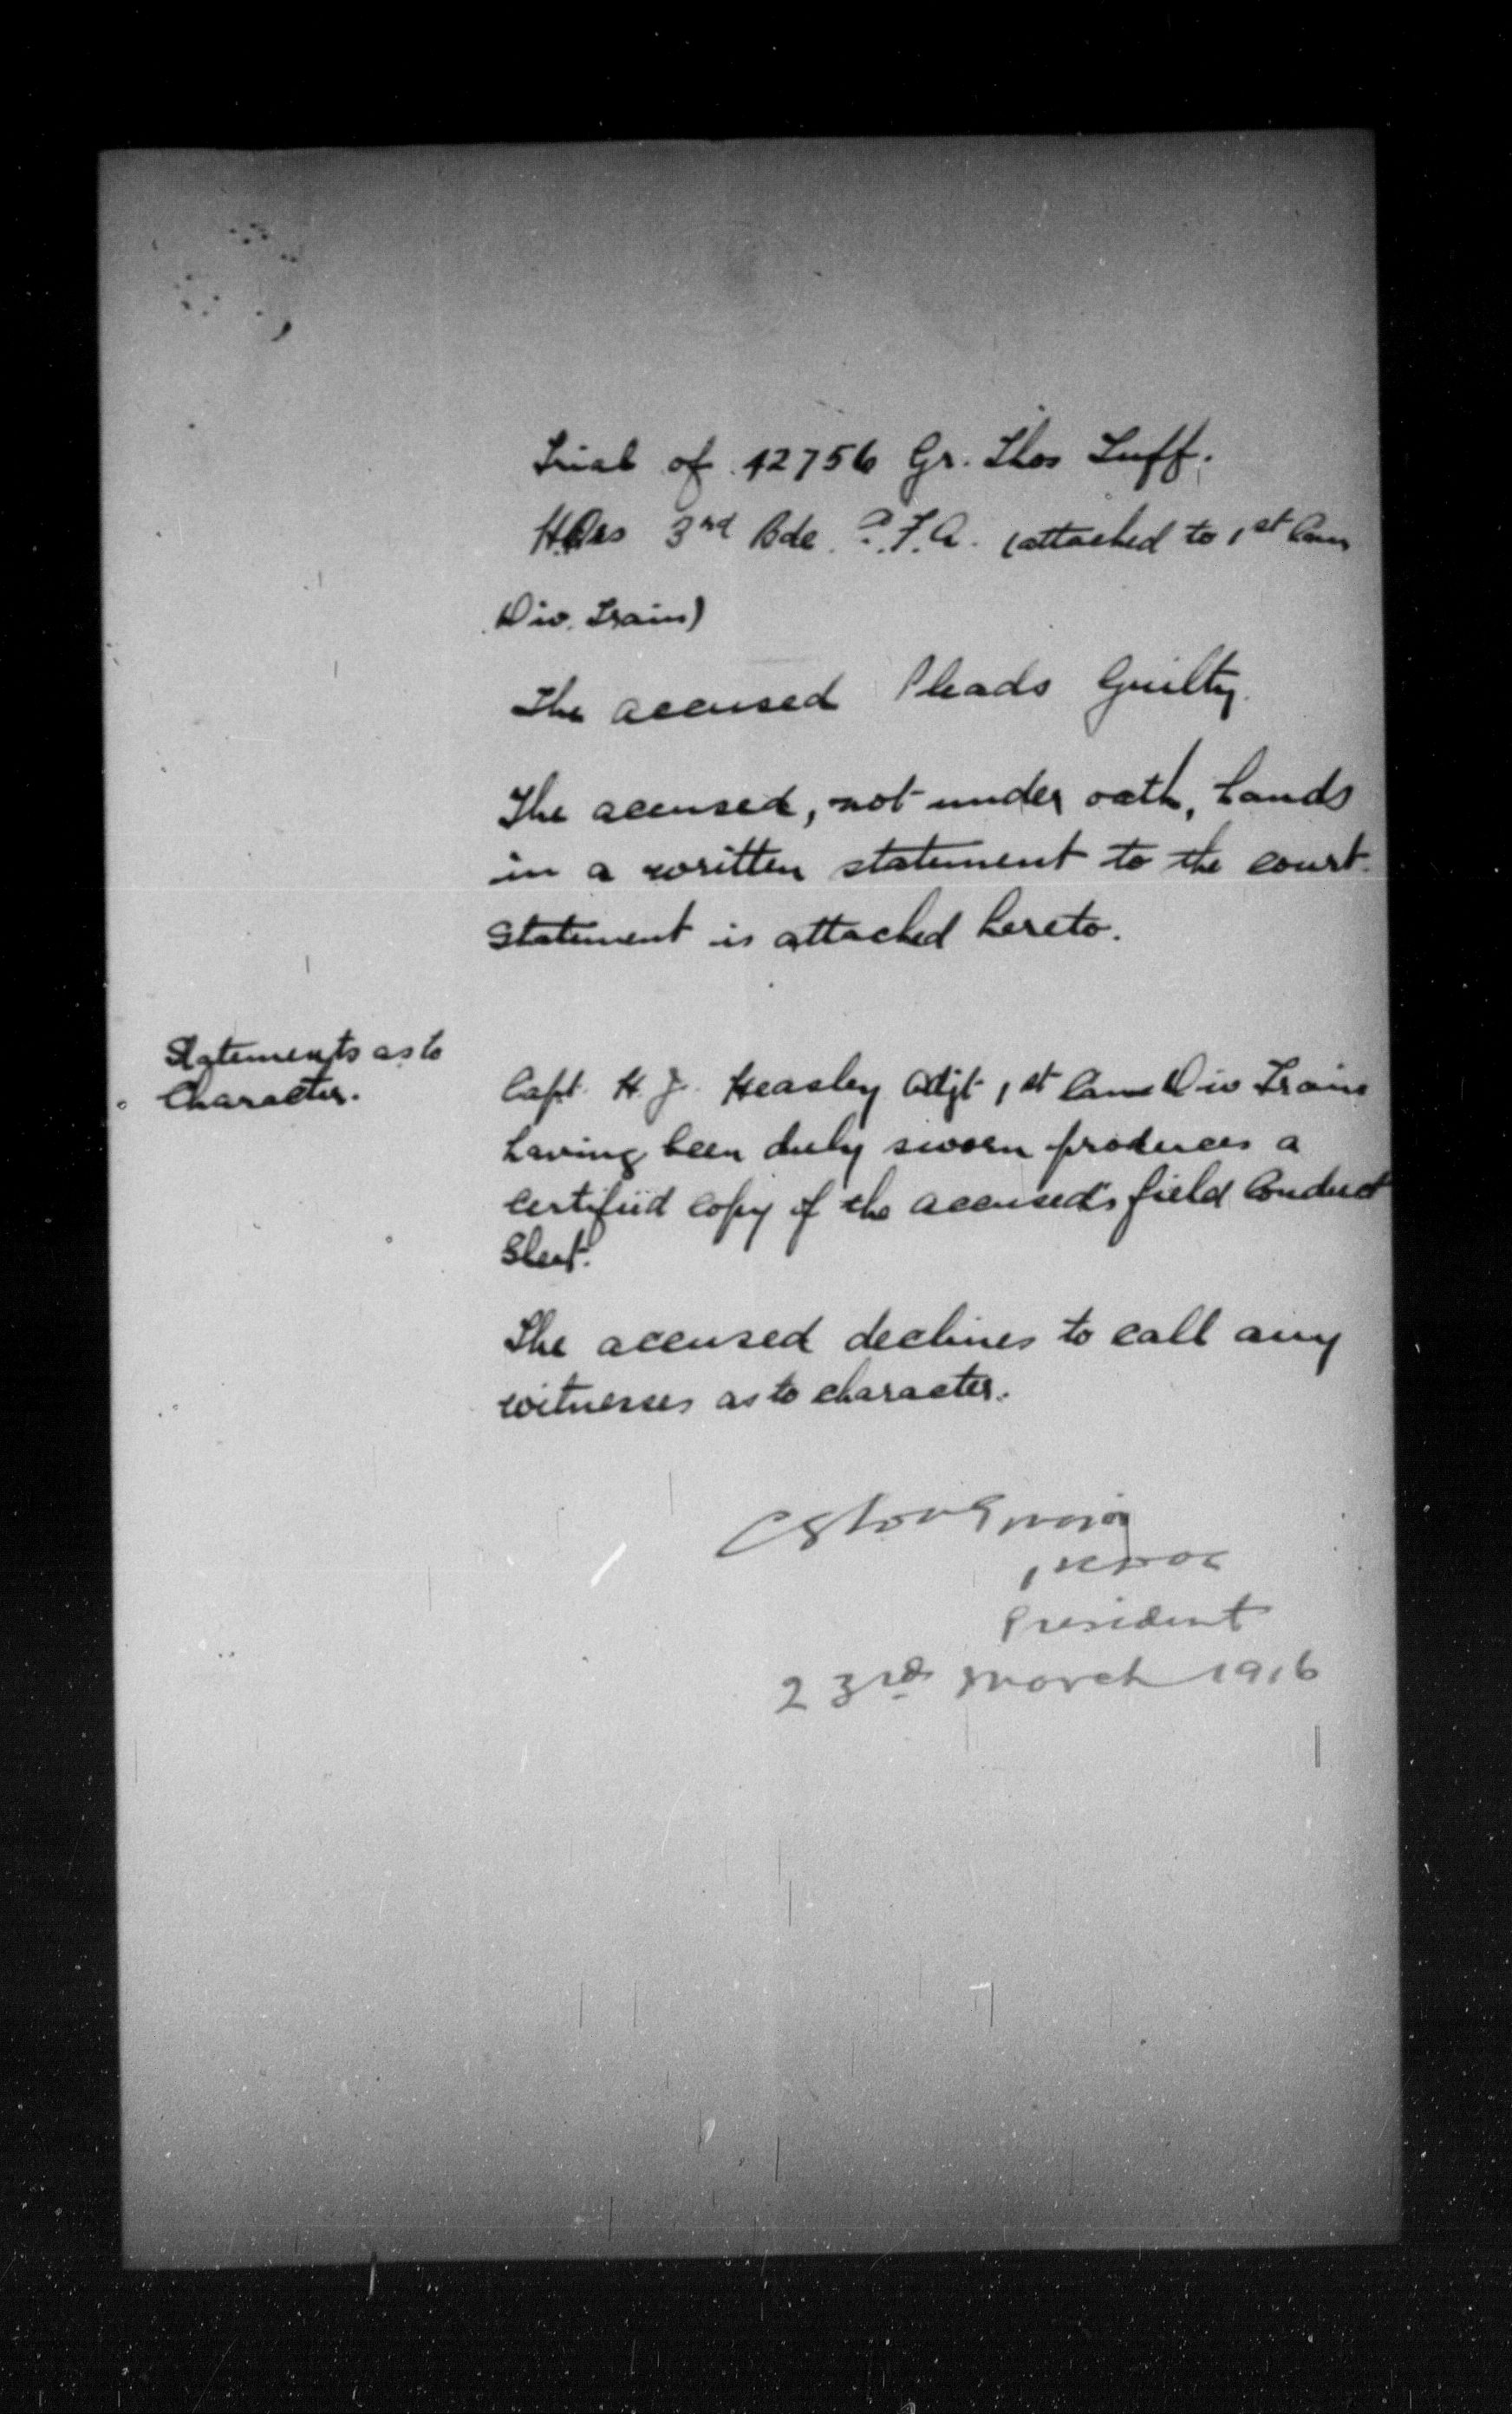 Trial of 42756 Gr. Thos Tuff.
HQrs 3rd Bde. C.F.A. (attached to 1st Can
Div. Train)
The accused Pleads Guilty.
The accused, not under oath, hands
in a written statement to the court.
Statement is attached hereto.
Statements as to
Character.
Capt. H. J. Heasley Adjt 1st Can Div Train
having been duly sworn produces a
certified copy of the accused's field Conduct
Sheet.
The accused declines to call any
witnesses as to character.
President
23rd March 1916